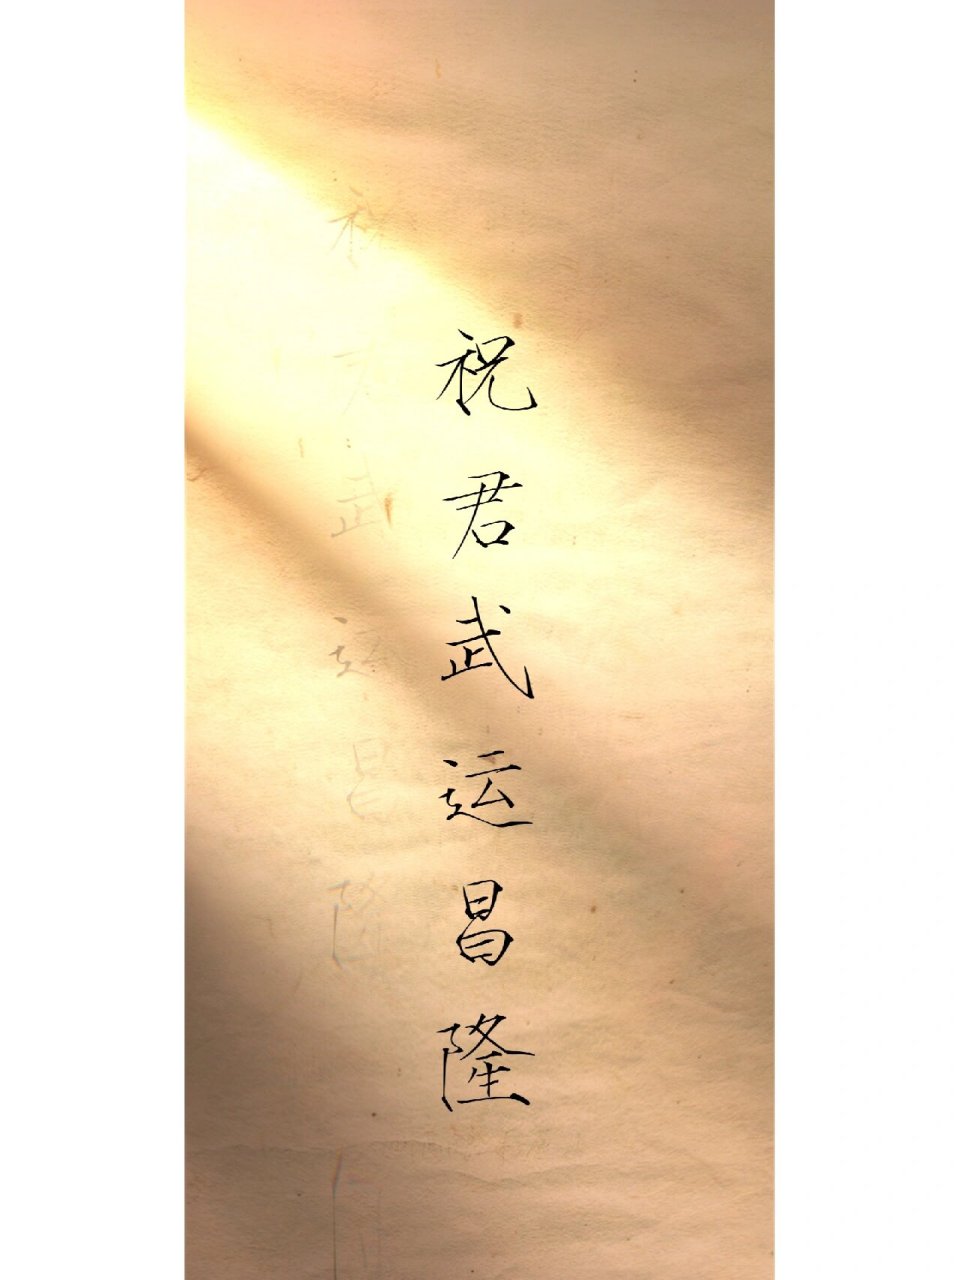 祝君武运昌隆